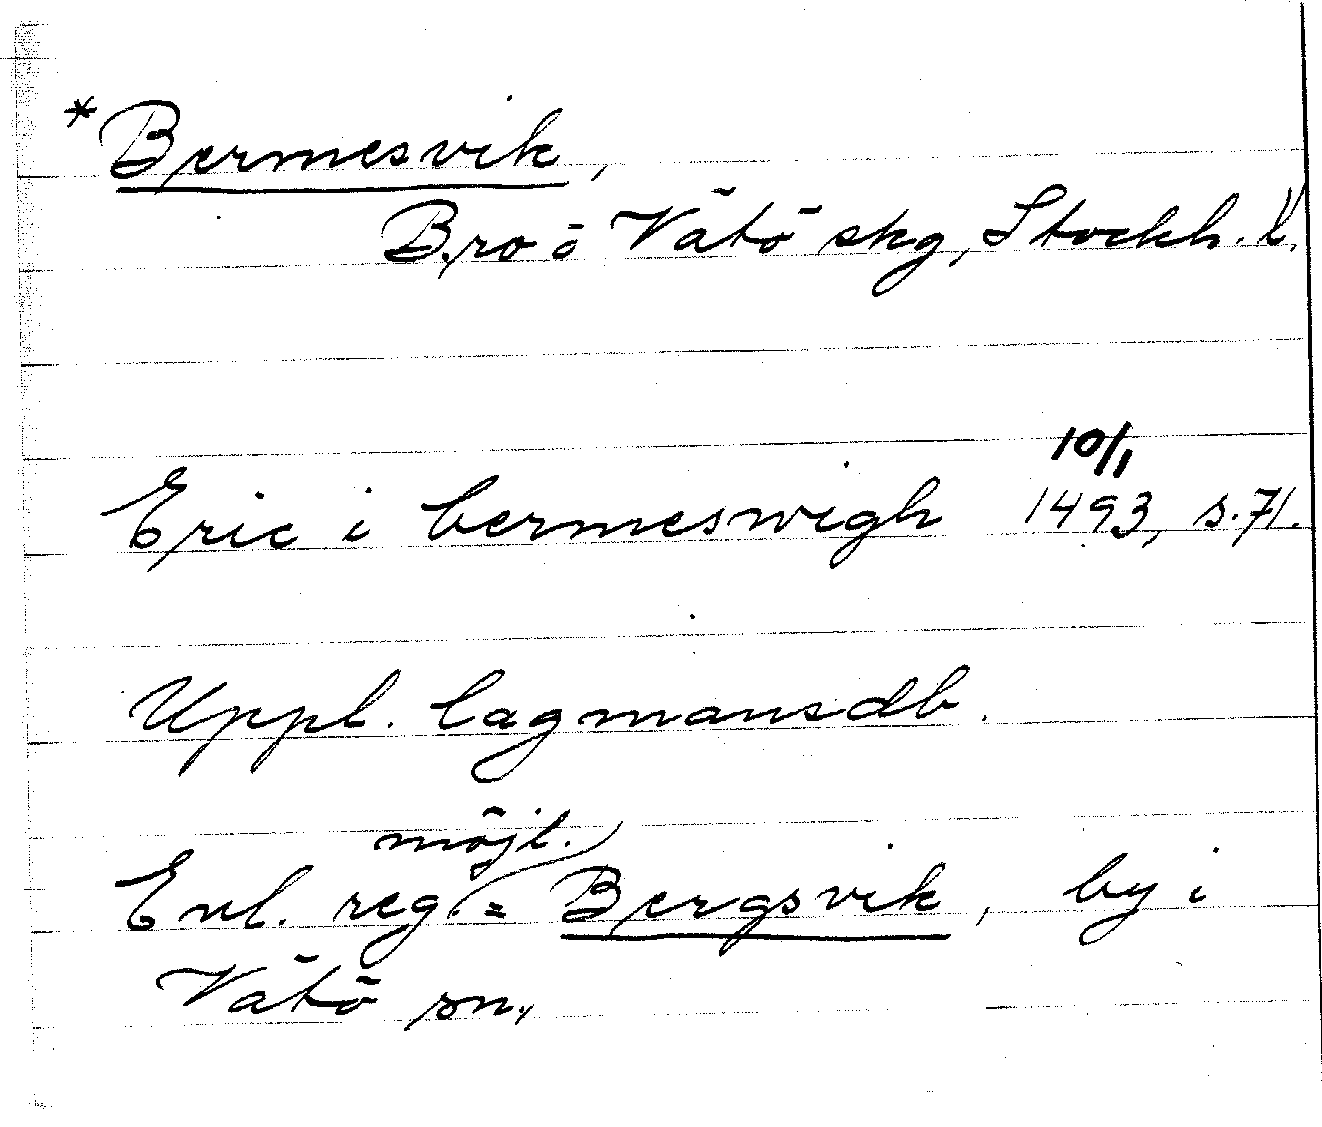 *Bermesvik,
Bro o Vätö skg, Stockh. l.
10/1
Eric i bermeswigh 1493, s. 71.
Uppl. lagmansdb.
möjl.
Enl. reg. = Bergsvik, by i
Vätö sn.